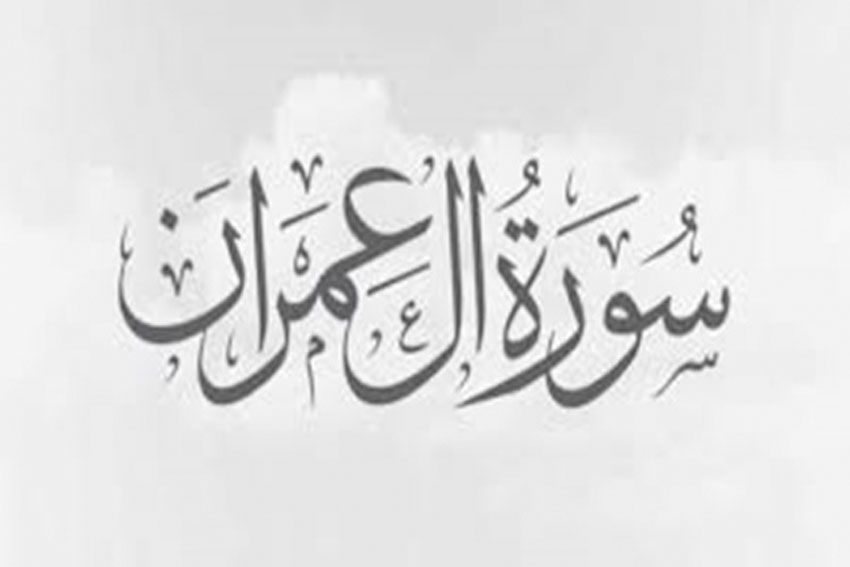 سُورَةُ ال عِمْرَان